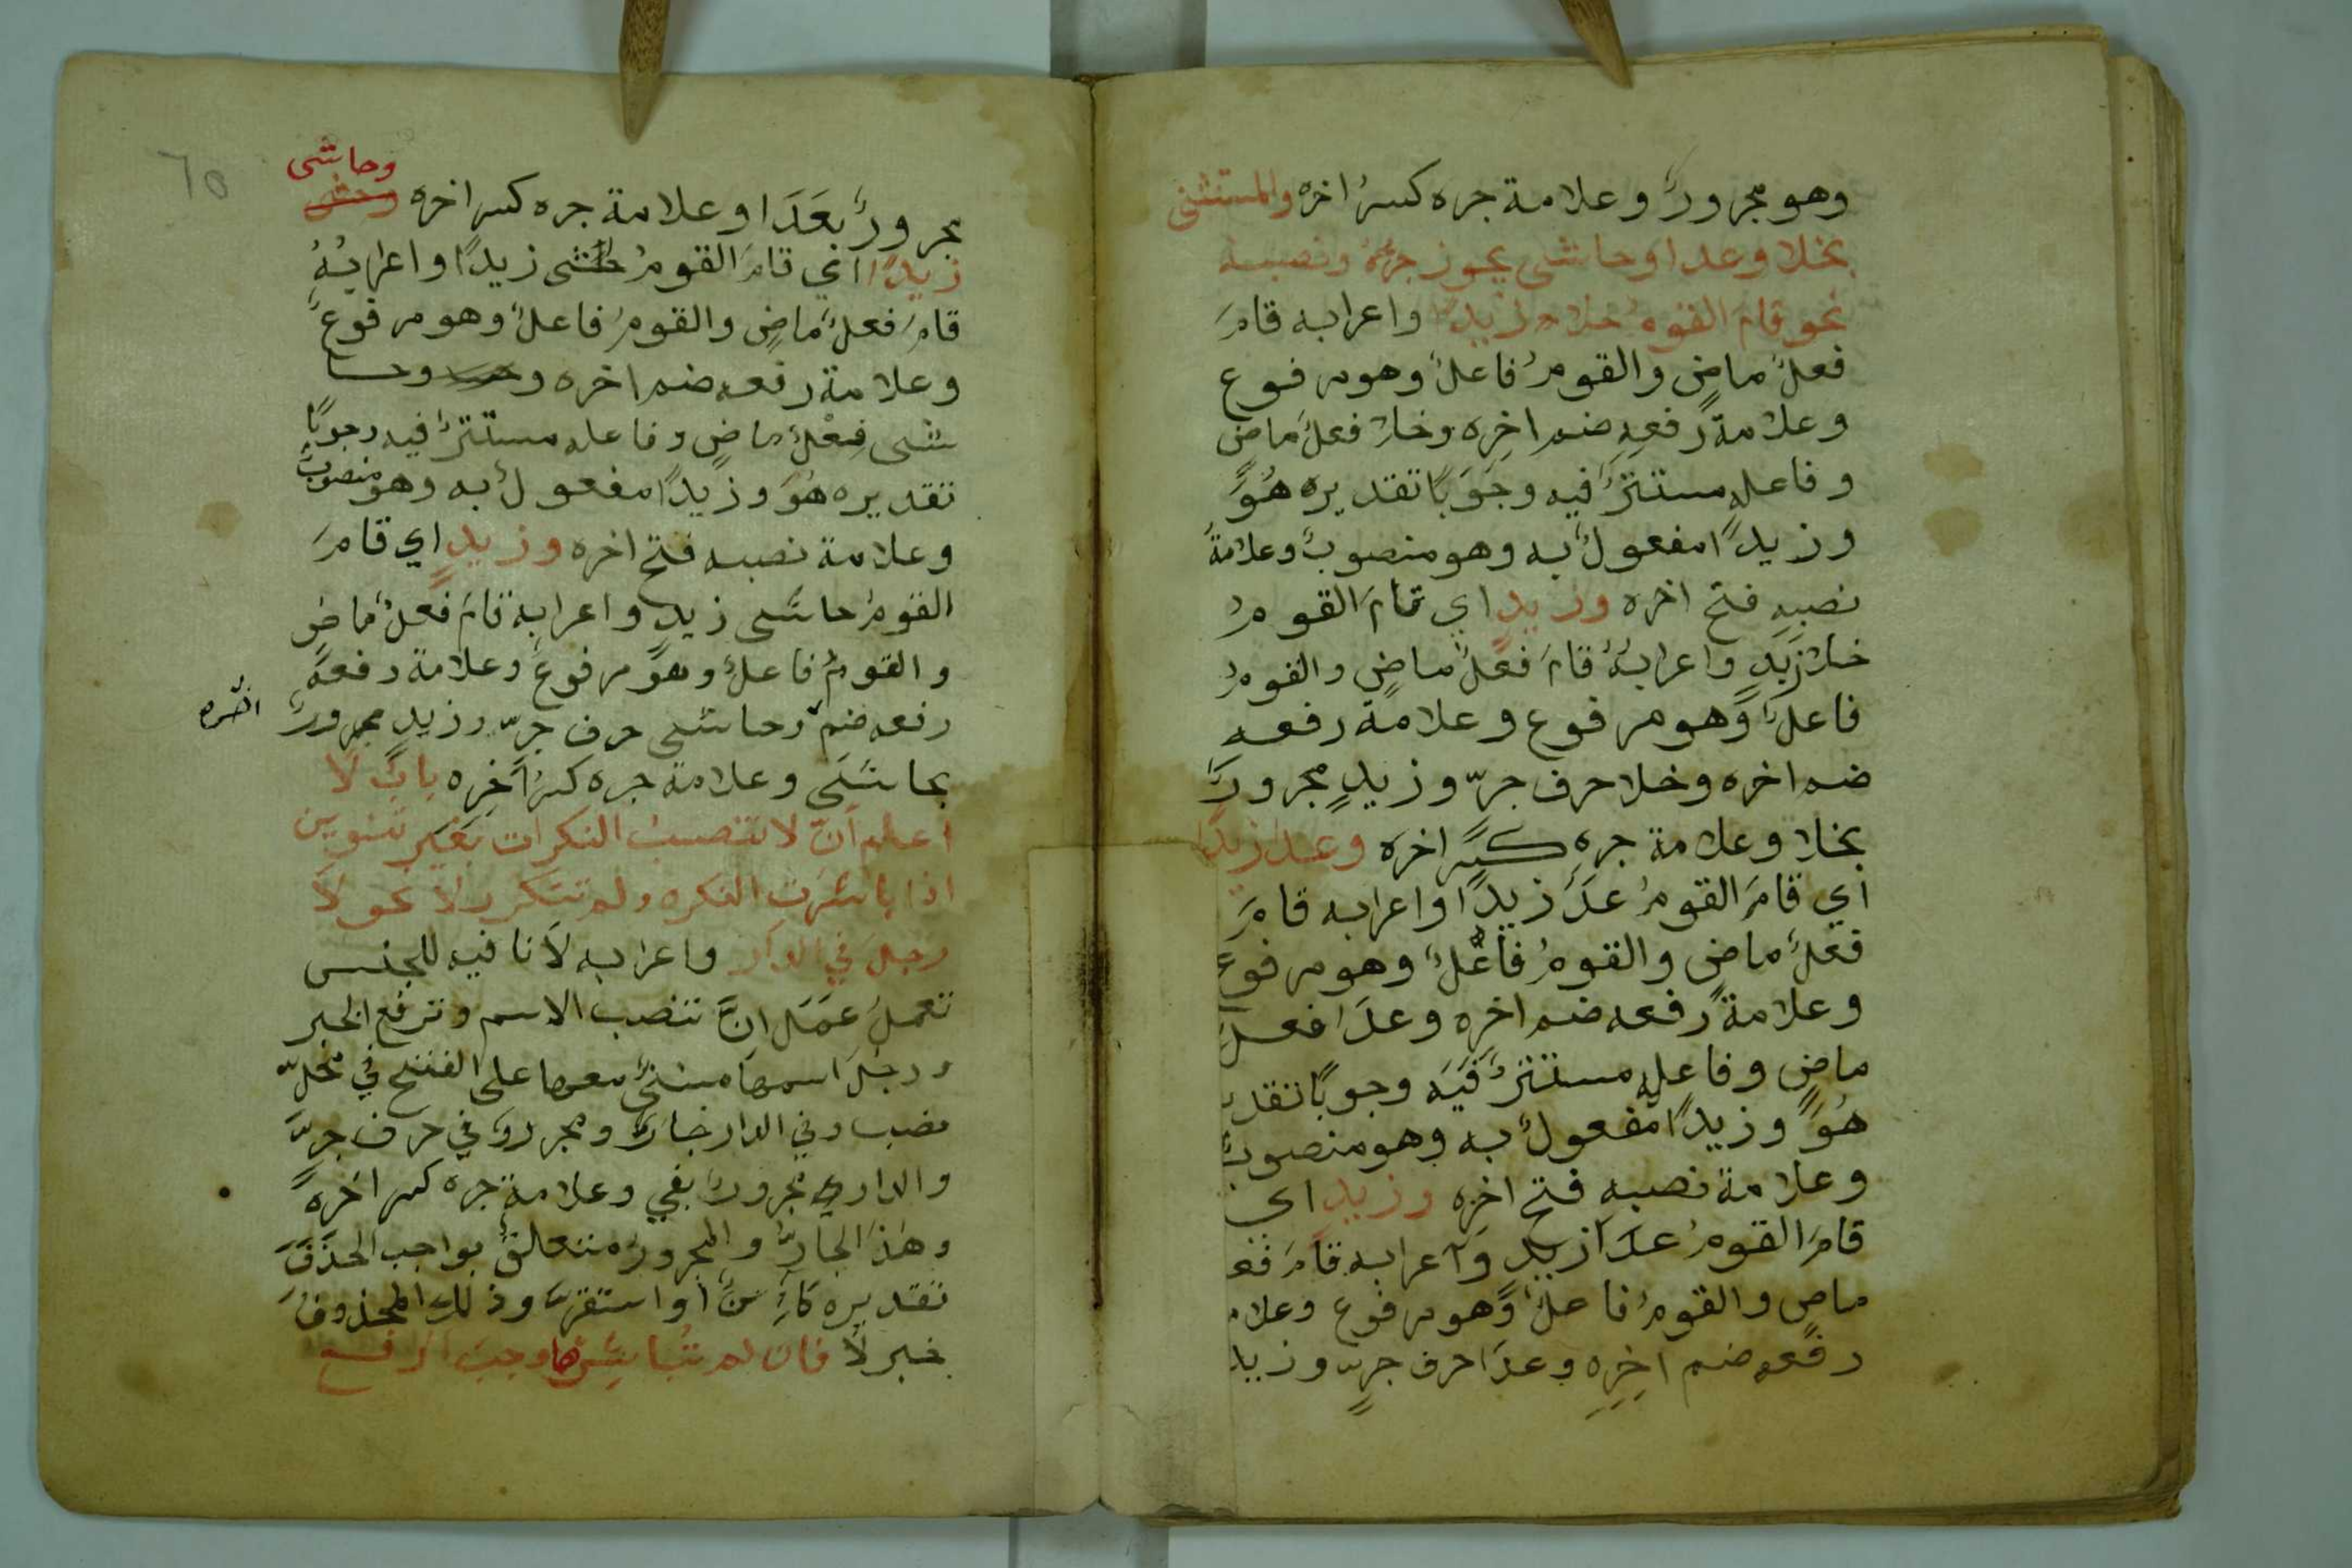 وهو مجرورٌ وعلامة جره كسرُ اخره والمستثنى
بخلا وعدا وحاشى يجوز جرهُ ونصبه
نحو قام القومُ خلا زيدًا واعرابه قامَ
فعلٌ ماضٍ والقومُ فاعلٌ وهو مرفوع
وعلامةُ رفعِهِ ضم اخرِه وخلا فعلٌ ماضٍ
وفاعله مستترٌ فيه وجَوَبًا تقديره هُوَ
وزيدًا مفعولٌ به وهو منصوبٌ وعلامةُ
نصبهِ فتح اخره وزيدٍ اي قامَ القومُ
خلا زيدٍ واعرابُهُ قامَ فعلٌ ماضٍ والقومُ
فاعلٌ وهو مرفوع وعلامة رفعه
ضم اخره وخلا حرف جرّ وزيدٍ مجرورٌ
بخلا وعلامة جرهِ كسر اخره وعدا زيدًا
اي قامَ القومُ عدَ زيدًا واعرابه قامَ
فعلٌ ماضٍ والقومُ فاعلٌ وهو مرفوع
وعلامةُ رفعه ضم اخرِه وعدَا فعل
ماضٍ وفاعلهِ مستترٌ فيَه وجوبًا تقد
هُوَ وزيدًا مفعولٌ به وهو منصوبٌ
وعلامة نصبهِ فتح اخرِه وزيدٍ اي
قامَ القومُ عدَا زيدٍ واعرابه قامَ فع
ماضٍ والقومُ فاعلٌ وهو مرفوع وعلام
رفعه ضم اخِرِه وعدَا حرف جرٍّ وزيد
٦٥
وحاشى
مجرورٌ بعَدَا وعلامة جره كسر اخره وحشى
زيدًا اي قامَ القومُ حاشى زيدًا واعرابُهُ
قامَ فعلٌ ماضٍ والقومُ فاعلٌ وهو مرفوعٌ
وعلامة رفعه ضم اخره وحسا
شى فِعْلٌ ماضٍ وفاعله مستترٌ فيه وجوبًا
تقديره هُوَ وزيدًا مفعولٌ به وهو منصوبٌ
وعلامة نصبه فتح اخره وزيدٍ اي قامَ
القومُ حاشى زيدٍ واعرابه قامَ فعلٌ ماضٍ
والقومُ فاعلٌ وهو مرفوعٌ وعلامة رفعهَ
رفعه ضم وحاشى حرف جرّ وزيدٍ مجرورٌ
اخره
بحاشَى وعلامة جره كسرُ اَخِرِه بابُ لَا
اعلم اَنّ لا تنصبُ النكرات بغير تنوين
اذا باشَرَت النكره ولم تتكرر لا نحو لَا
رجلَ في الدار واعرابه لَا نافيه للجنس
تعملُ عَمَلَ انَّ تنصب الاسم وترفع الخبر
ورجلَ اسمها مبنيٌّ معها على الفتح في محلّ
نصب وفي الدار جارٌ ومجرور في حرف جرٍّ
والدار مجرورٌ بفي وعلامة جره كسر اخره
وهذَا الجارُّ والمجرورُ متعالقٌ بواجب الحَذَفَ
تقديره كَائِنٌ او استقرّ وذلك المحذوفُ
خبر لَا فان لم تُباشِرها وجبَ الرفع